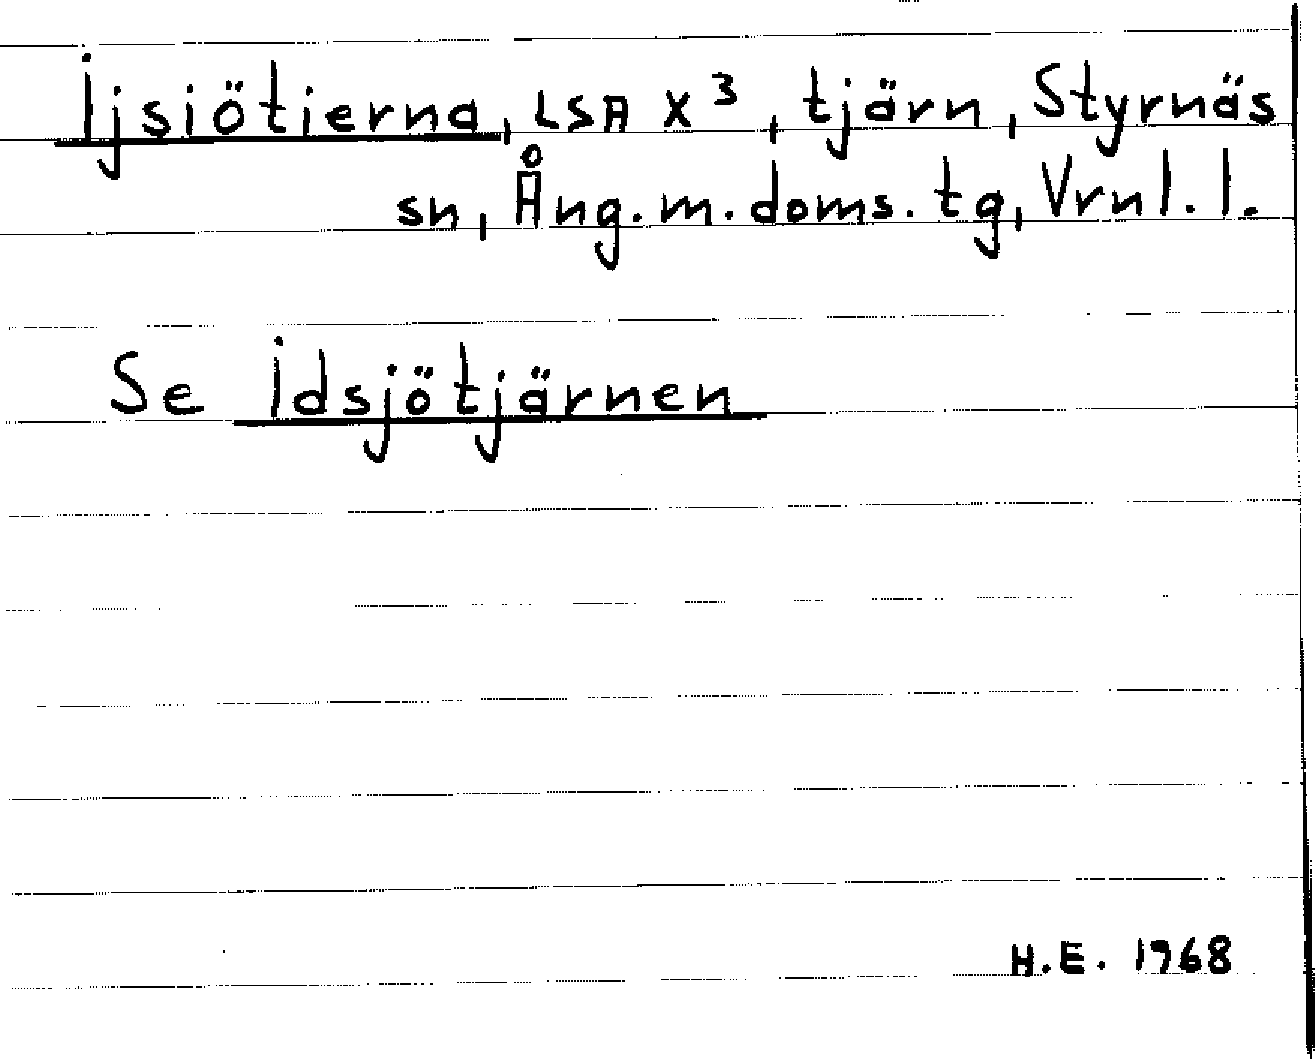 Ijsiötierna, LSA X³, tjärn, Styrnäs
sn, Ång.m.doms.tg, Vrnl.l.
Se Idsjötjärnen
H.E. 1968